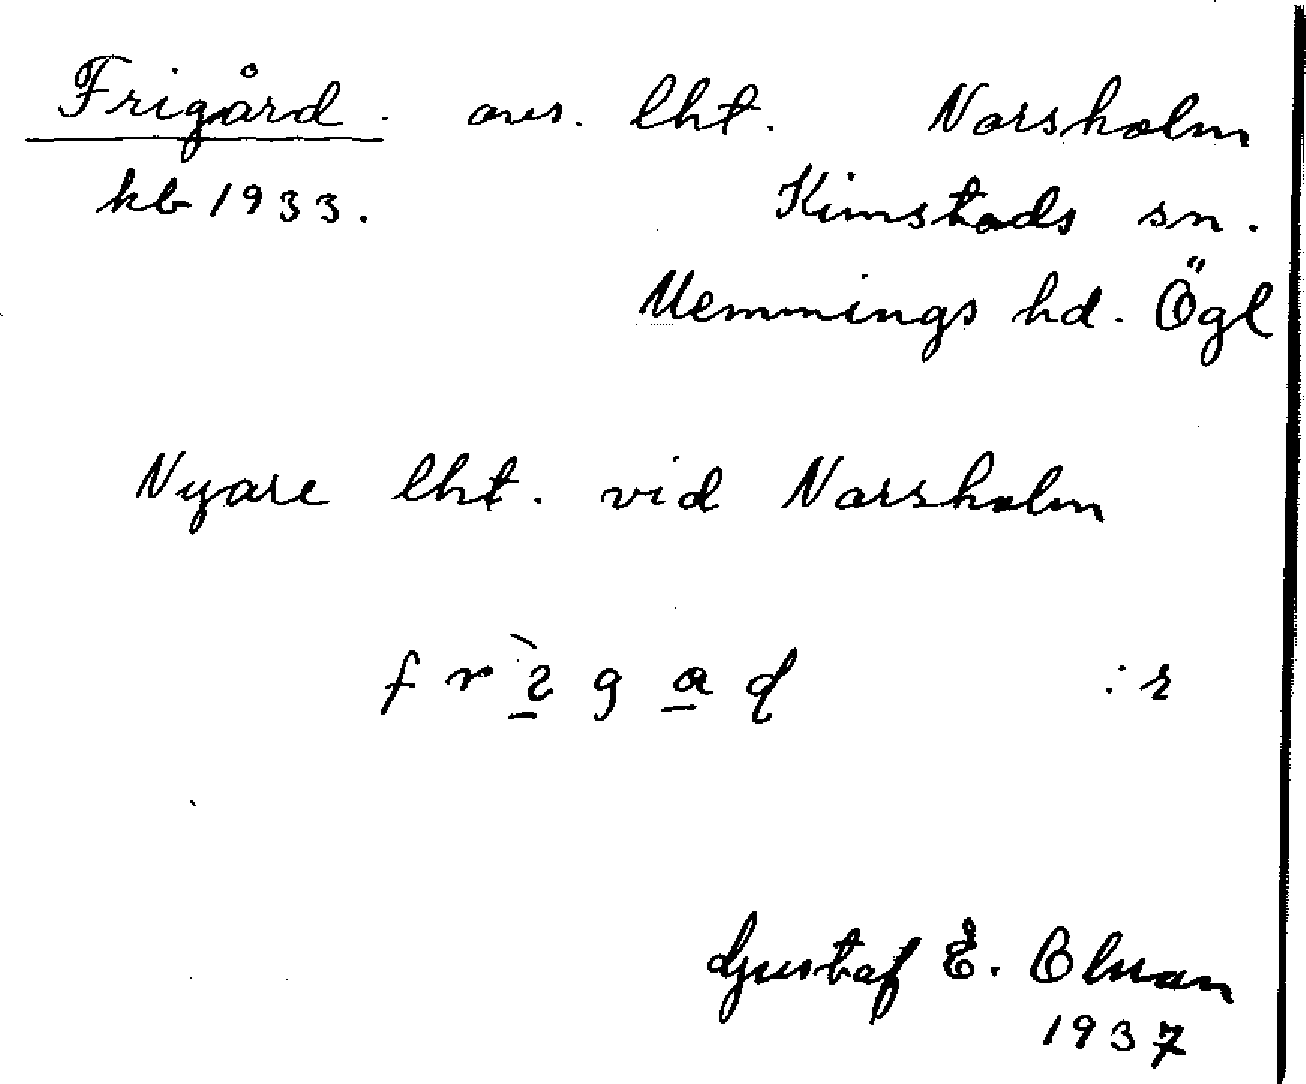 Frigård. avs. lht. Norsholm
kb 1933. Kimstads sn.
Memmings hd. Ögl
Nyare lht. vid Norsholm
Gustaf E. Olsson
1937